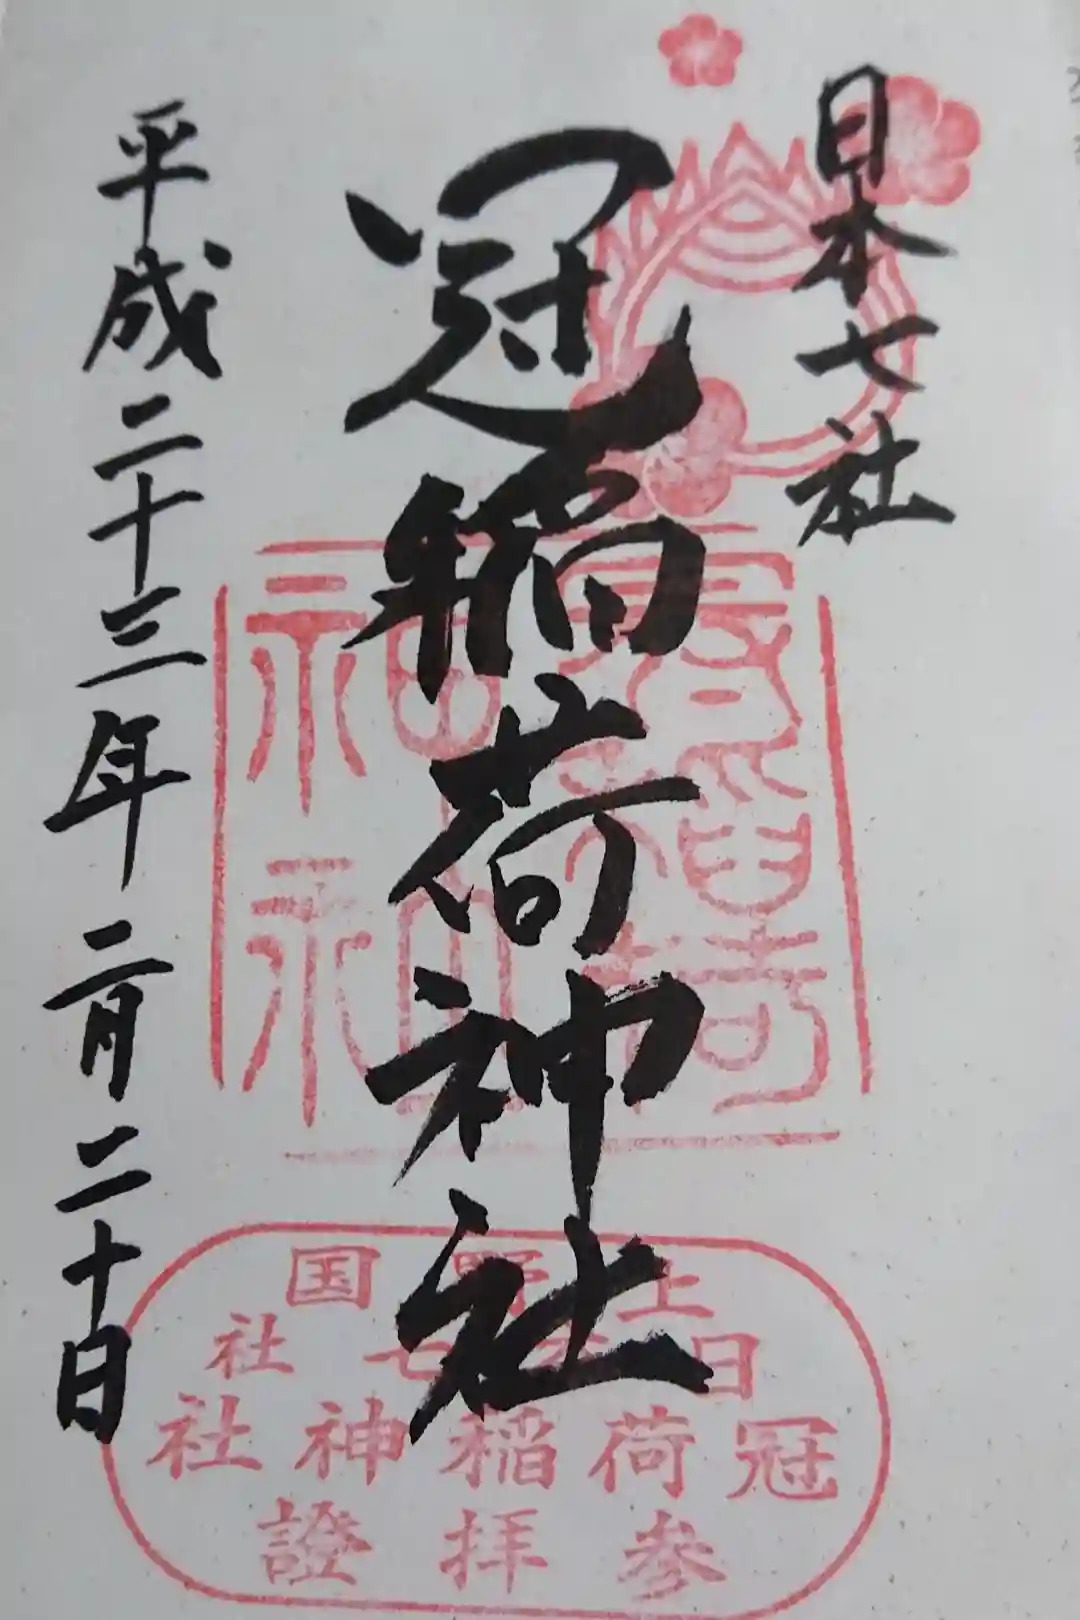 日本七社
冠稲荷神社
平成二十三年二月二十日
上野国
日本七社
冠稲荷神社
参拝證